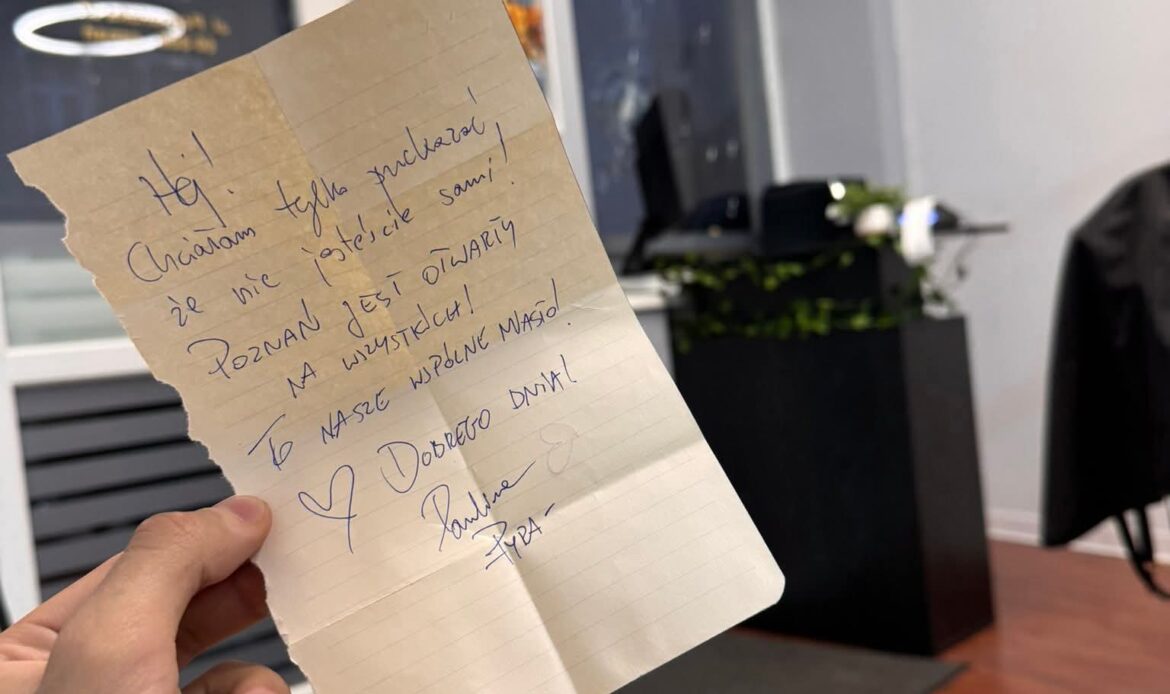 Hej!
Chciałam tylko przekazać,
że nie jesteście sami!
POZNAŃ JEST OTWARTY
NA WSZYSTKICH!
TO NASZE WSPÓLNE MIASTO!
DOBREGO DNIA!
Paulina
PYRA